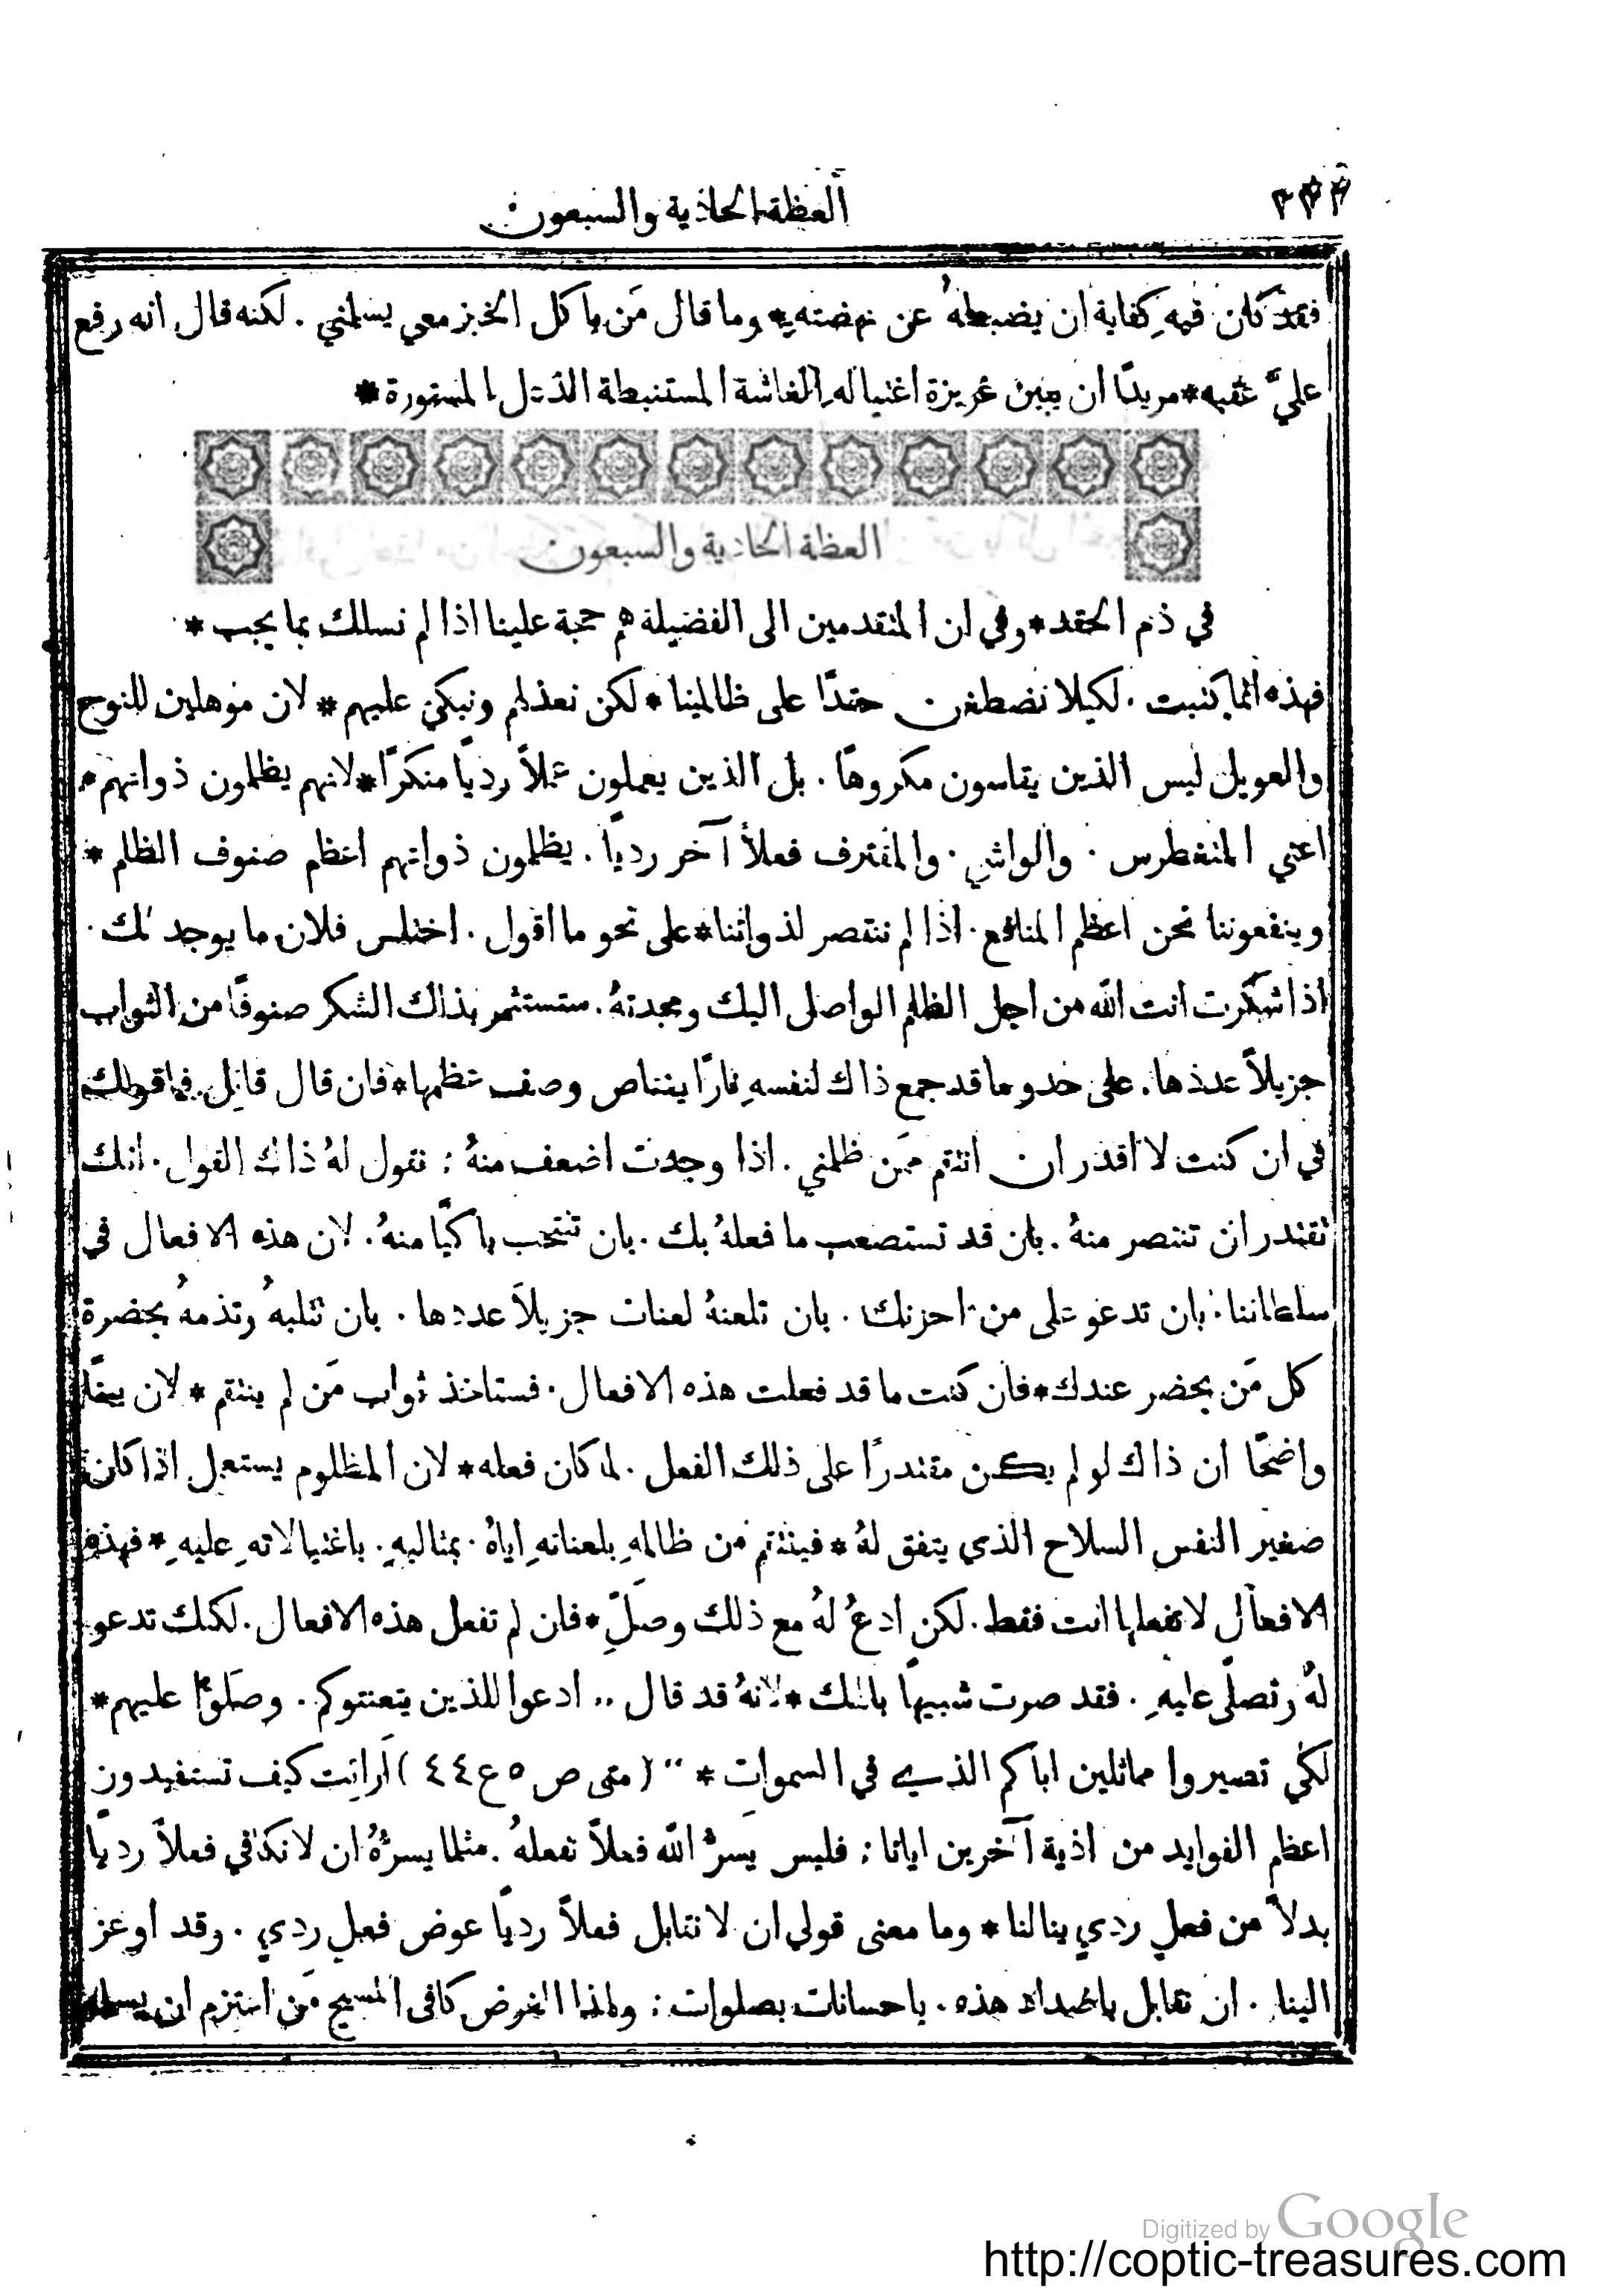 العظة الحادية والسبعون
فقد كان فيهِ كفاية ان يضبطهُ عن نهضتهِ * وما قال مَن ياكل الخبز معي يسلمني . لكنه قال انه رفع
عليَّ عقبه * مريدًا ان يبين غريزة اغتيالهِ الغاشة المستنبطة المستورة *
العظة الحادية والسبعون
في ذم الحقد * وفي ان المتقدمين الى الفضيلة هم حجة علينا اذا لم نسلك بما يجب *
فهذه انما كتبت . لكيلا نضطغن حقدًا على ظالمينا * لكن نعذلهم ونبكي عليهم * لان موهلين للنوح
والعويل ليس الذين يقاسون مكروهًا . بل الذين يعملون عملاً رديًا منكرًا * لانهم يظلمون ذواتهم *
اعني المتغطرس . والواشي . والمقترف فعلاً آخر رديًا . يظلمون ذواتهم اعظم صنوف الظلم *
وينفعوننا نحن اعظم المنافع . اذا لم ننتصر لذواتنا * على نحو ما اقول . اختلس فلان ما يوجد لك .
اذا شكرت انت الله من اجل الظلم الواصل اليك ومجدتهُ . ستستثمر بذاك الشكر صنوفًا من الثواب
جزيلاً عددها . على حدو ما قد جمع ذاك لنفسهِ نارًا يفتاص وصف عظمها * فان قال قائل . فما قولك
في ان كنت لا اقدر ان انتقم ممَن ظلمني . اذا وجدت اضعف منهُ : نقول لهُ ذاك القول . انك
تقتدر ان تنتصر منهُ . بان قد تستصعب ما فعلهُ بك . بان تنتحب باكيًا منهُ . لان هذه الافعال في
سلطاننا : بان تدعو على من احزنك . بان تلعنهُ لعنات جزيلاً عددها . بان تثلبهُ وتذمهُ بحضرة
كل مَن يحضر عندك * فان كنت ما قد فعلت هذه الافعال . فستاخذ ثواب مَن لم ينتقم * لان بيّنًا
واضحًا ان ذاك لو لم يكن مقتدرًا على ذلك الفعل . لما كان فعله * لان المظلوم يستعمل اذا كان
صغير النفس السلاح الذي يتفق لهُ * فينتقم من ظالمهِ بلعناتهِ اياهُ . بمثالبهِ . باغتيالاتهِ عليهِ * فهذه
الافعال لا تفعلها انت فقط . لكن ادعُ لهُ مع ذلك وصَلِّ * فان لم تفعل هذه الافعال . لكنك تدعو
لهُ وتصلّى عليهِ . فقد صرت شبيهًا بالله * لانهُ قد قال ,, ادعوا للذين يتعنتوكم . وصَلّوا عليهم *
لكي تصيروا مماثلين اباكم الذي في السموات * ‘‘ (متى ص ٥ ع ٤٤) أرايت كيف تستفيدون
اعظم الفوايد من اذية آخرين ايانا : فليس يَسرُّ الله فعلاً تفعلهُ . مثلما يسرُّهُ ان لا نكافي فعلاً رديًا
بدلاً من فعلٍ رديٍ ينالنا * وما معنى قولي ان لا نقابل فعلاً رديًا عوض فعلٍ رديٍ . وقد اوعز
الينا . ان نقابل باضداد هذه . باحسانات بصلوات : ولهذا الغرض كافى المسيح مَن اعتزم ان يسلمه
Digitized by Google
http://coptic-treasures.com